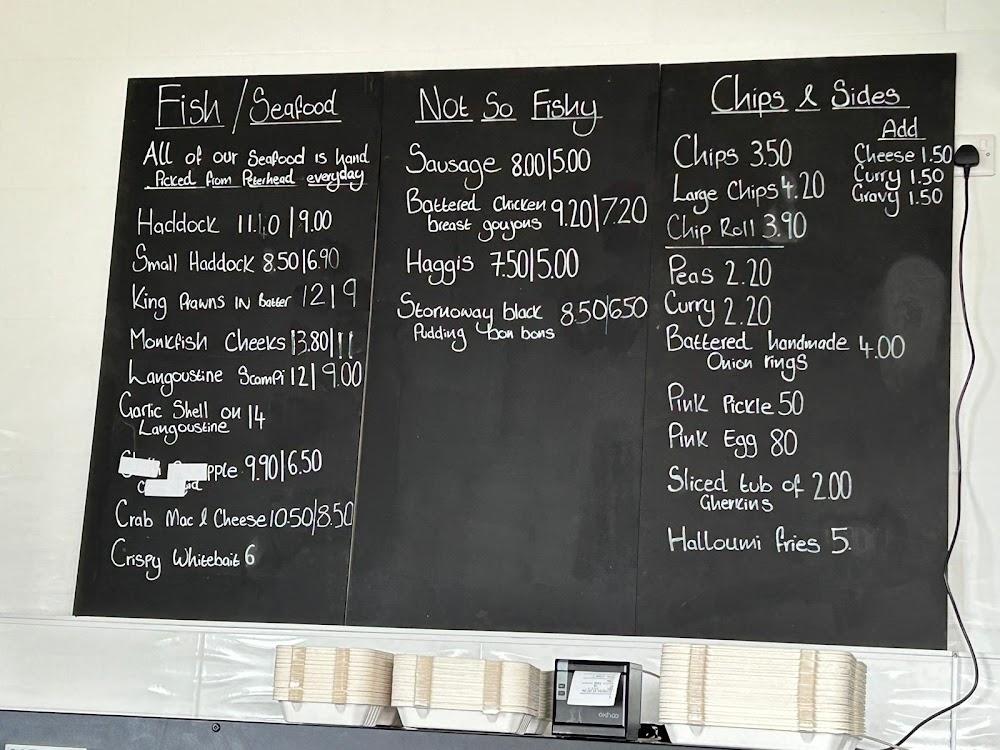 Fish / Seafood
All of our Seafood is hand
Picked from Peterhead everyday
Haddock 11.40 | 9.00
Small Haddock 8.50 | 6.90
King Prawns in batter 12 | 9
Monkfish Cheeks 13.80 | 11
Langoustine Scampi 12 | 9.00
Garlic Shell on 14
Langoustine
9.90 | 6.50
Crab Mac & Cheese 10.50 | 8.50
Crispy Whitebait 6
Not So Fishy
Sausage 8.00 | 5.00
Battered Chicken 9.20 | 7.20
breast goujons
Haggis 7.50 | 5.00
Stornoway black 8.50 | 6.50
Pudding bon bons
Chips & Sides
Chips 3.50
Large Chips 4.20
Chip Roll 3.90
Add
Cheese 1.50
Curry 1.50
Gravy 1.50
Peas 2.20
Curry 2.20
Battered handmade 4.00
Onion rings
Pink Pickle 50
Pink Egg 80
Sliced tub of 2.00
Gherkins
Halloumi fries 5.
oxhoo